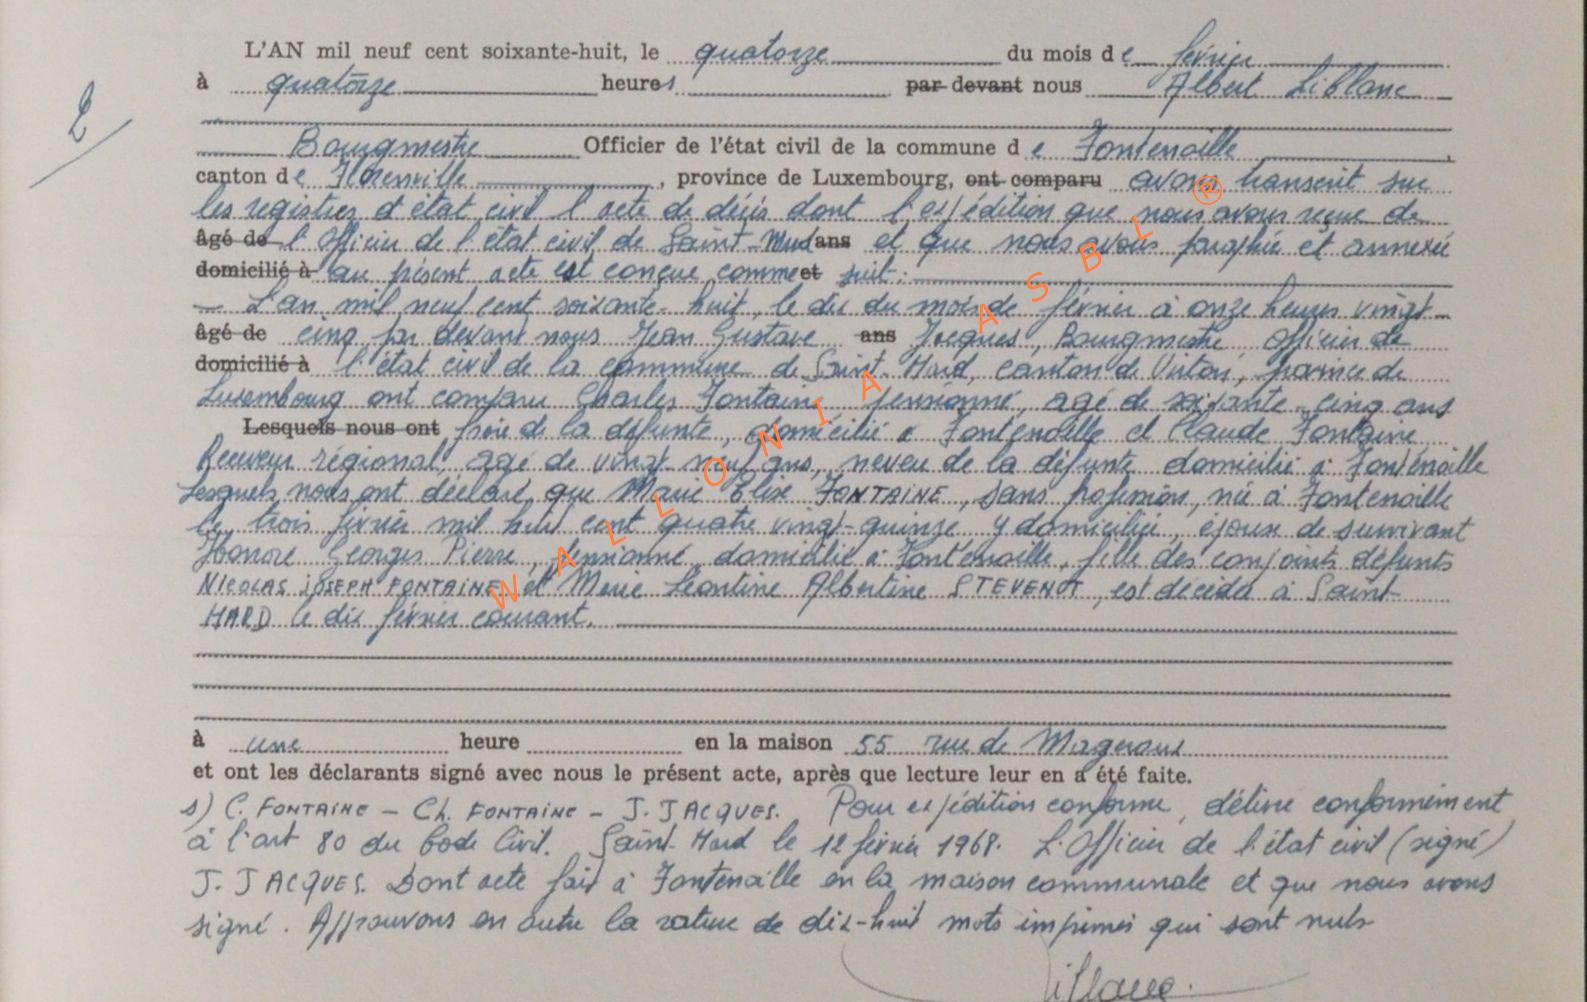 L'AN mil neuf cent soixante-huit, le quatorze du mois de février
à quatorze heures par devant nous Albert Liblanc
2
Bourgmestre Officier de l'état civil de la commune de Fontenoille,
canton de Florenville, province de Luxembourg, ont comparu avons transcrit sur
les registres d'état civil l'acte de décès dont l'expédition que nous avons reçue de
âgé de l'Officier de l'état civil de Saint-Mard ans et que nous avons paraphée et annexée
domicilié à au présent acte est conçue comme et suit :
L'an mil neuf cent soixante-huit, le dix du mois de février à onze heures vingt-
âgé de cinq par devant nous Jean Gustave ans Jacques, Bourgmestre Officier de
domicilié à l'état civil de la commune de Saint-Mard, canton de Virton, province de
Luxembourg ont comparu Charles Fontaine pensionné, âgé de soixante-cinq ans
Lesquels nous ont frère de la défunte, domicilié à Fontenoille et Claude Fontaine
Receveur régional, âgé de vingt neuf ans, neveu de la défunte domicilié à Fontenoille
Lesquels nous ont déclaré que Marie Elise FONTAINE, sans profession, née à Fontenoille
le trois février mil huit cent quatre vingt-quinze y domiciliée, épouse de survivant
Honoré Georges Pierre, pensionné, domicilié à Fontenoille, fille des conjoints défunts
NICOLAS JOSEPH FONTAINE et Marie Léontine Albertine STEVENOT, est décédée à Saint
MARD le dix février courant.
à une heure en la maison 55 rue de Mageroux
et ont les déclarants signé avec nous le présent acte, après que lecture leur en a été faite.
s) C. FONTAINE – Ch. FONTAINE – J. JACQUES. Pour expédition conforme, délivré conformément
à l'art 80 du Code Civil. Saint-Mard le 12 février 1968. L'Officier de l'état civil (signé)
J. JACQUES. Dont acte fait à Fontenoille en la maison communale et que nous avons
signé. Approuvons en outre la rature de dix-huit mots imprimés qui sont nuls
WALLONIA ASBL ®